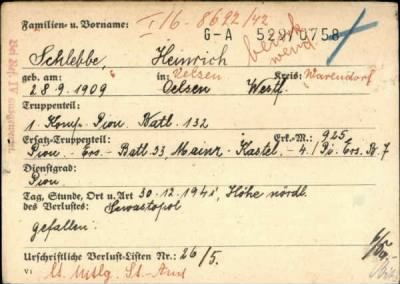 Familien- u. Vorname: I/16-8622/42
G-A 529/0758
Schlebbe, Heinrich
geb. am: in: Oelsen Kreis: Warendorf
28.9.1909 Oelsen Westf.
Truppenteil:
1. Komp. Pion. Batl. 132
Ersatz-Truppenteil: Erk.-M.: 925
Pion.-Ers.-Batl. 33, Mainz-Kastel - 4./Pi. Ers. B. 7
Dienstgrad:
Pion.
Tag, Stunde, Ort u. Art 30.12.1941, Höhe nördl.
des Verlustes: Sewastopol
gefallen.
Urschriftliche Verlust-Listen Nr.: 26/5.
VI